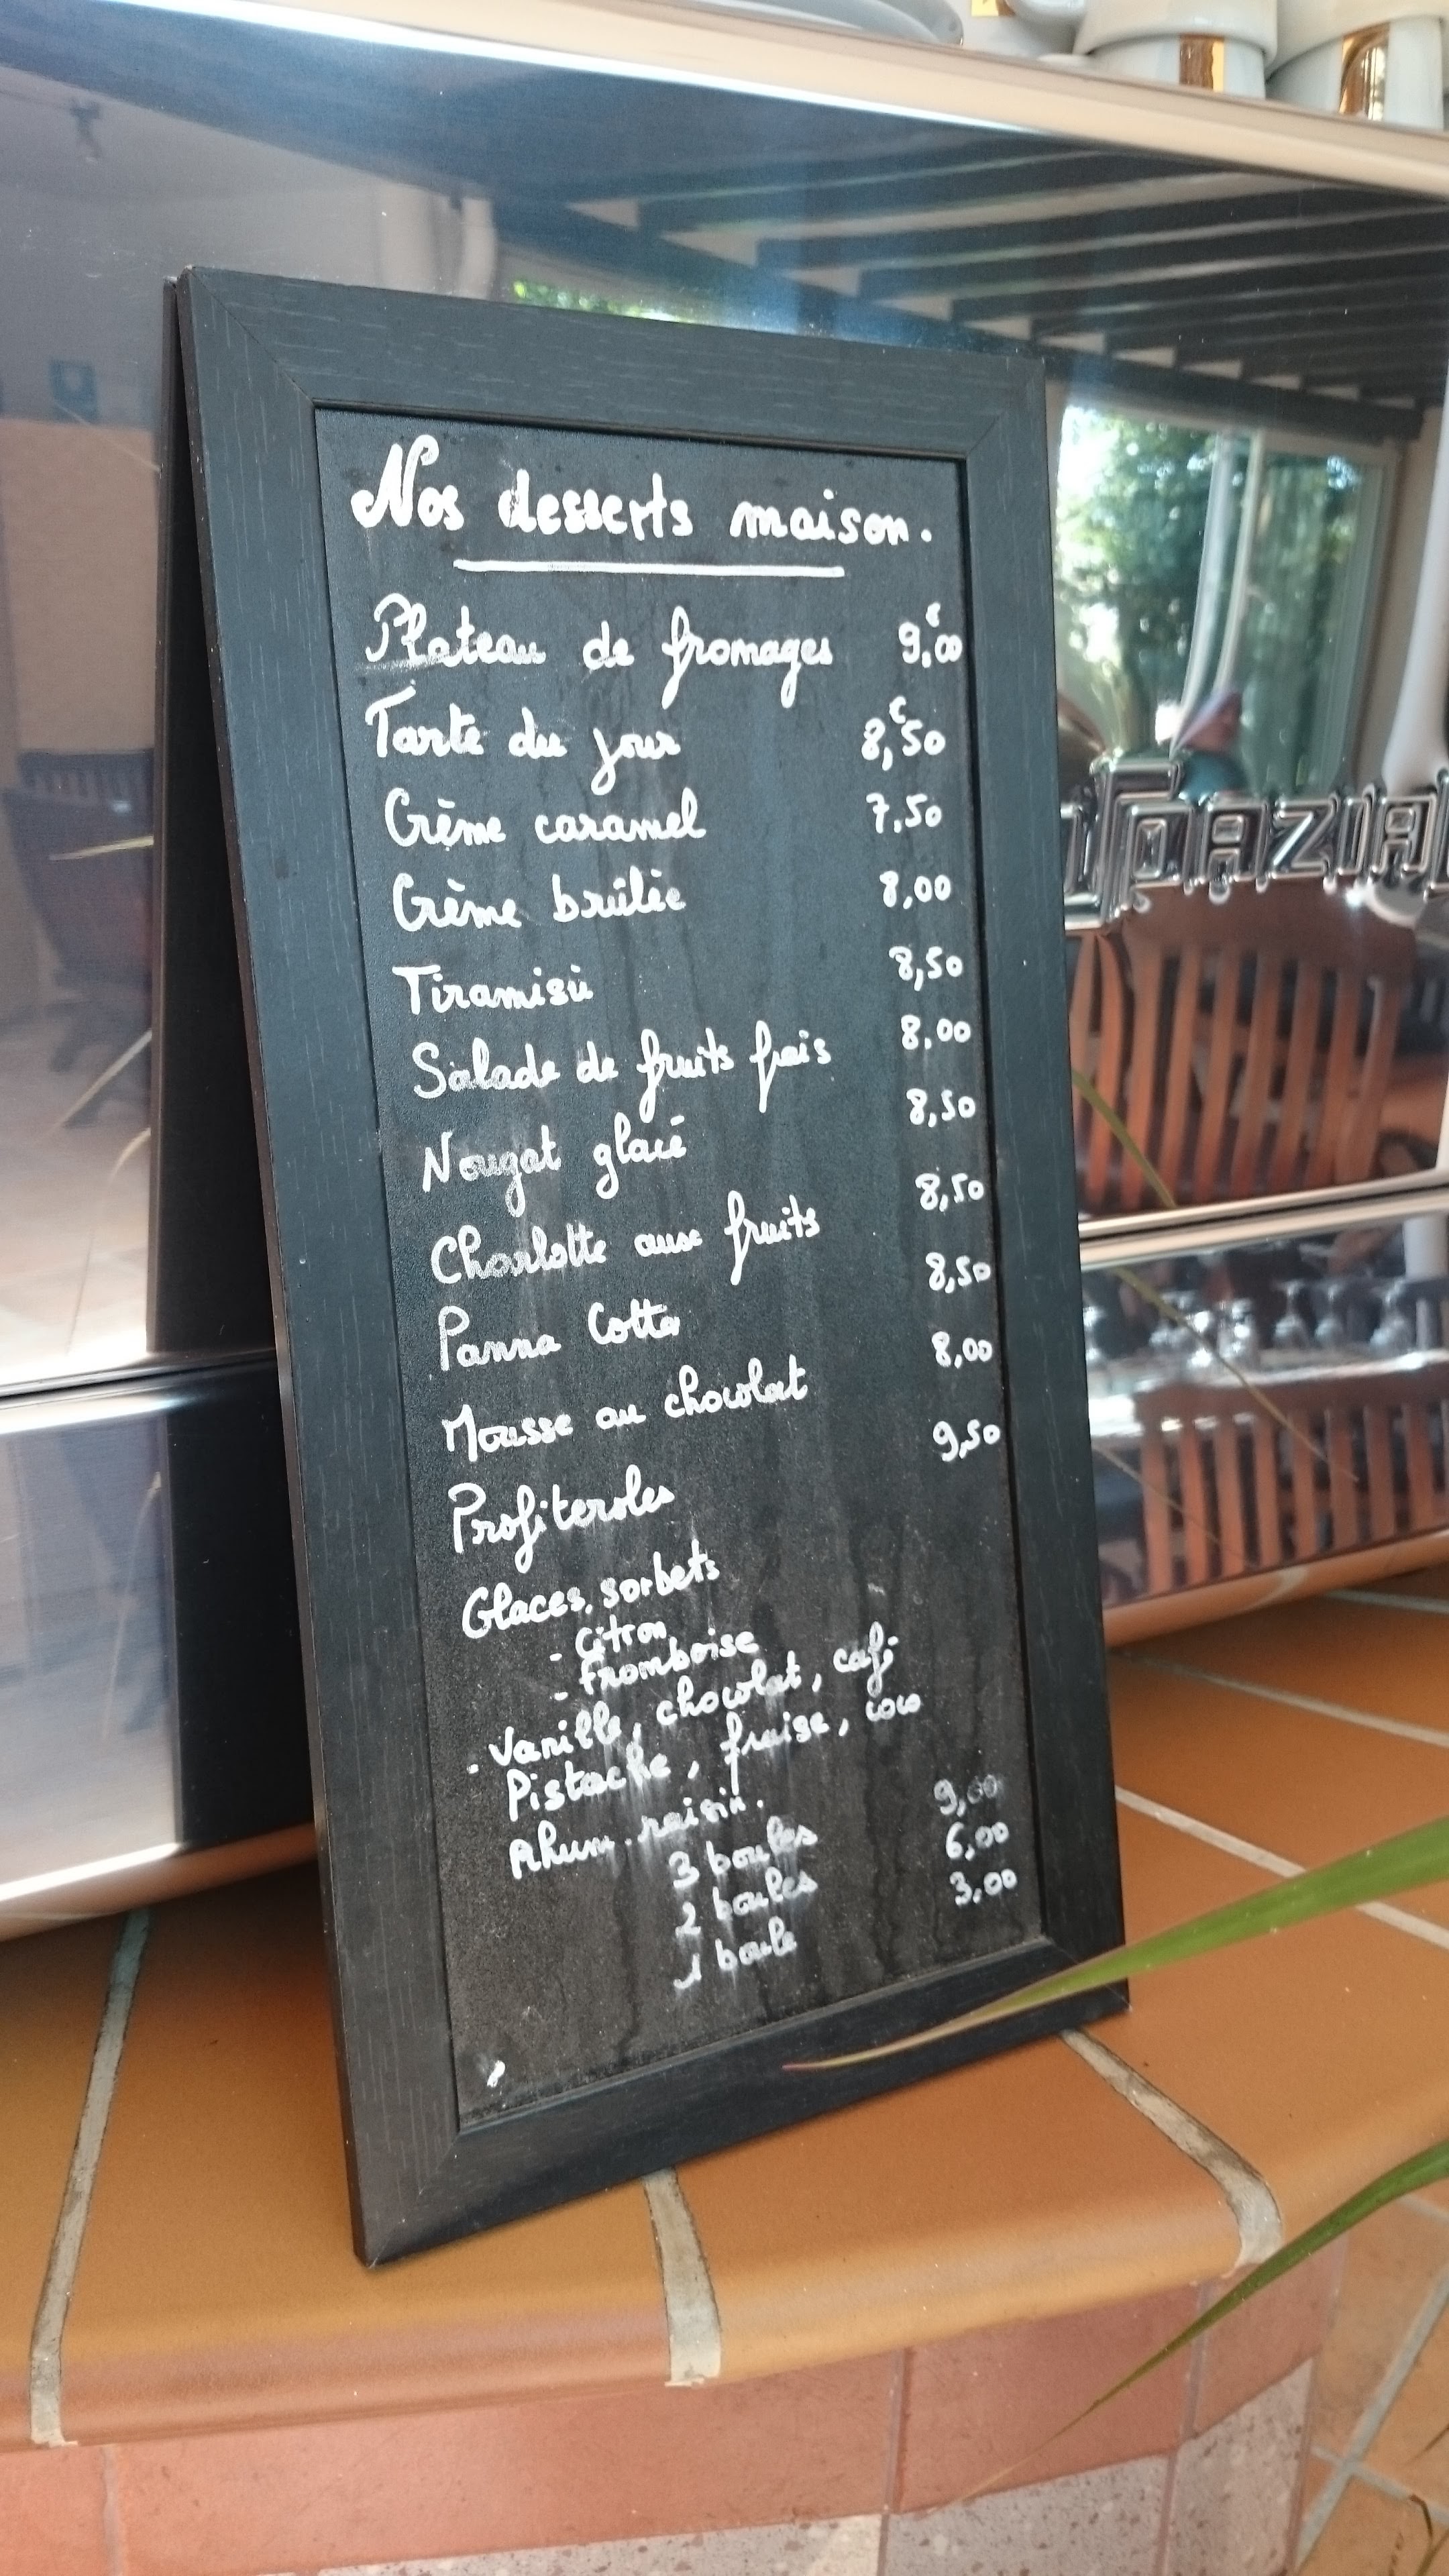 Nos desserts maison.
Plateau de fromages 9,€00
Tarte du jour 8,€50
Crème caramel 7,50
Crème brûlée 8,00
Tiramisù 8,50
Salade de fruits frais 8,00
Nougat glacé 8,50
Charlotte aux fruits 8,50
Panna Cotta 8,50
Mousse au chocolat 8,00
Profiteroles 9,50
Glaces, sorbets
- Citron
- Framboise
- Vanille, chocolat, café
Pistache, fraise, coco
Rhum-raisin.
3 boules 9,00
2 boules 6,00
1 boule 3,00